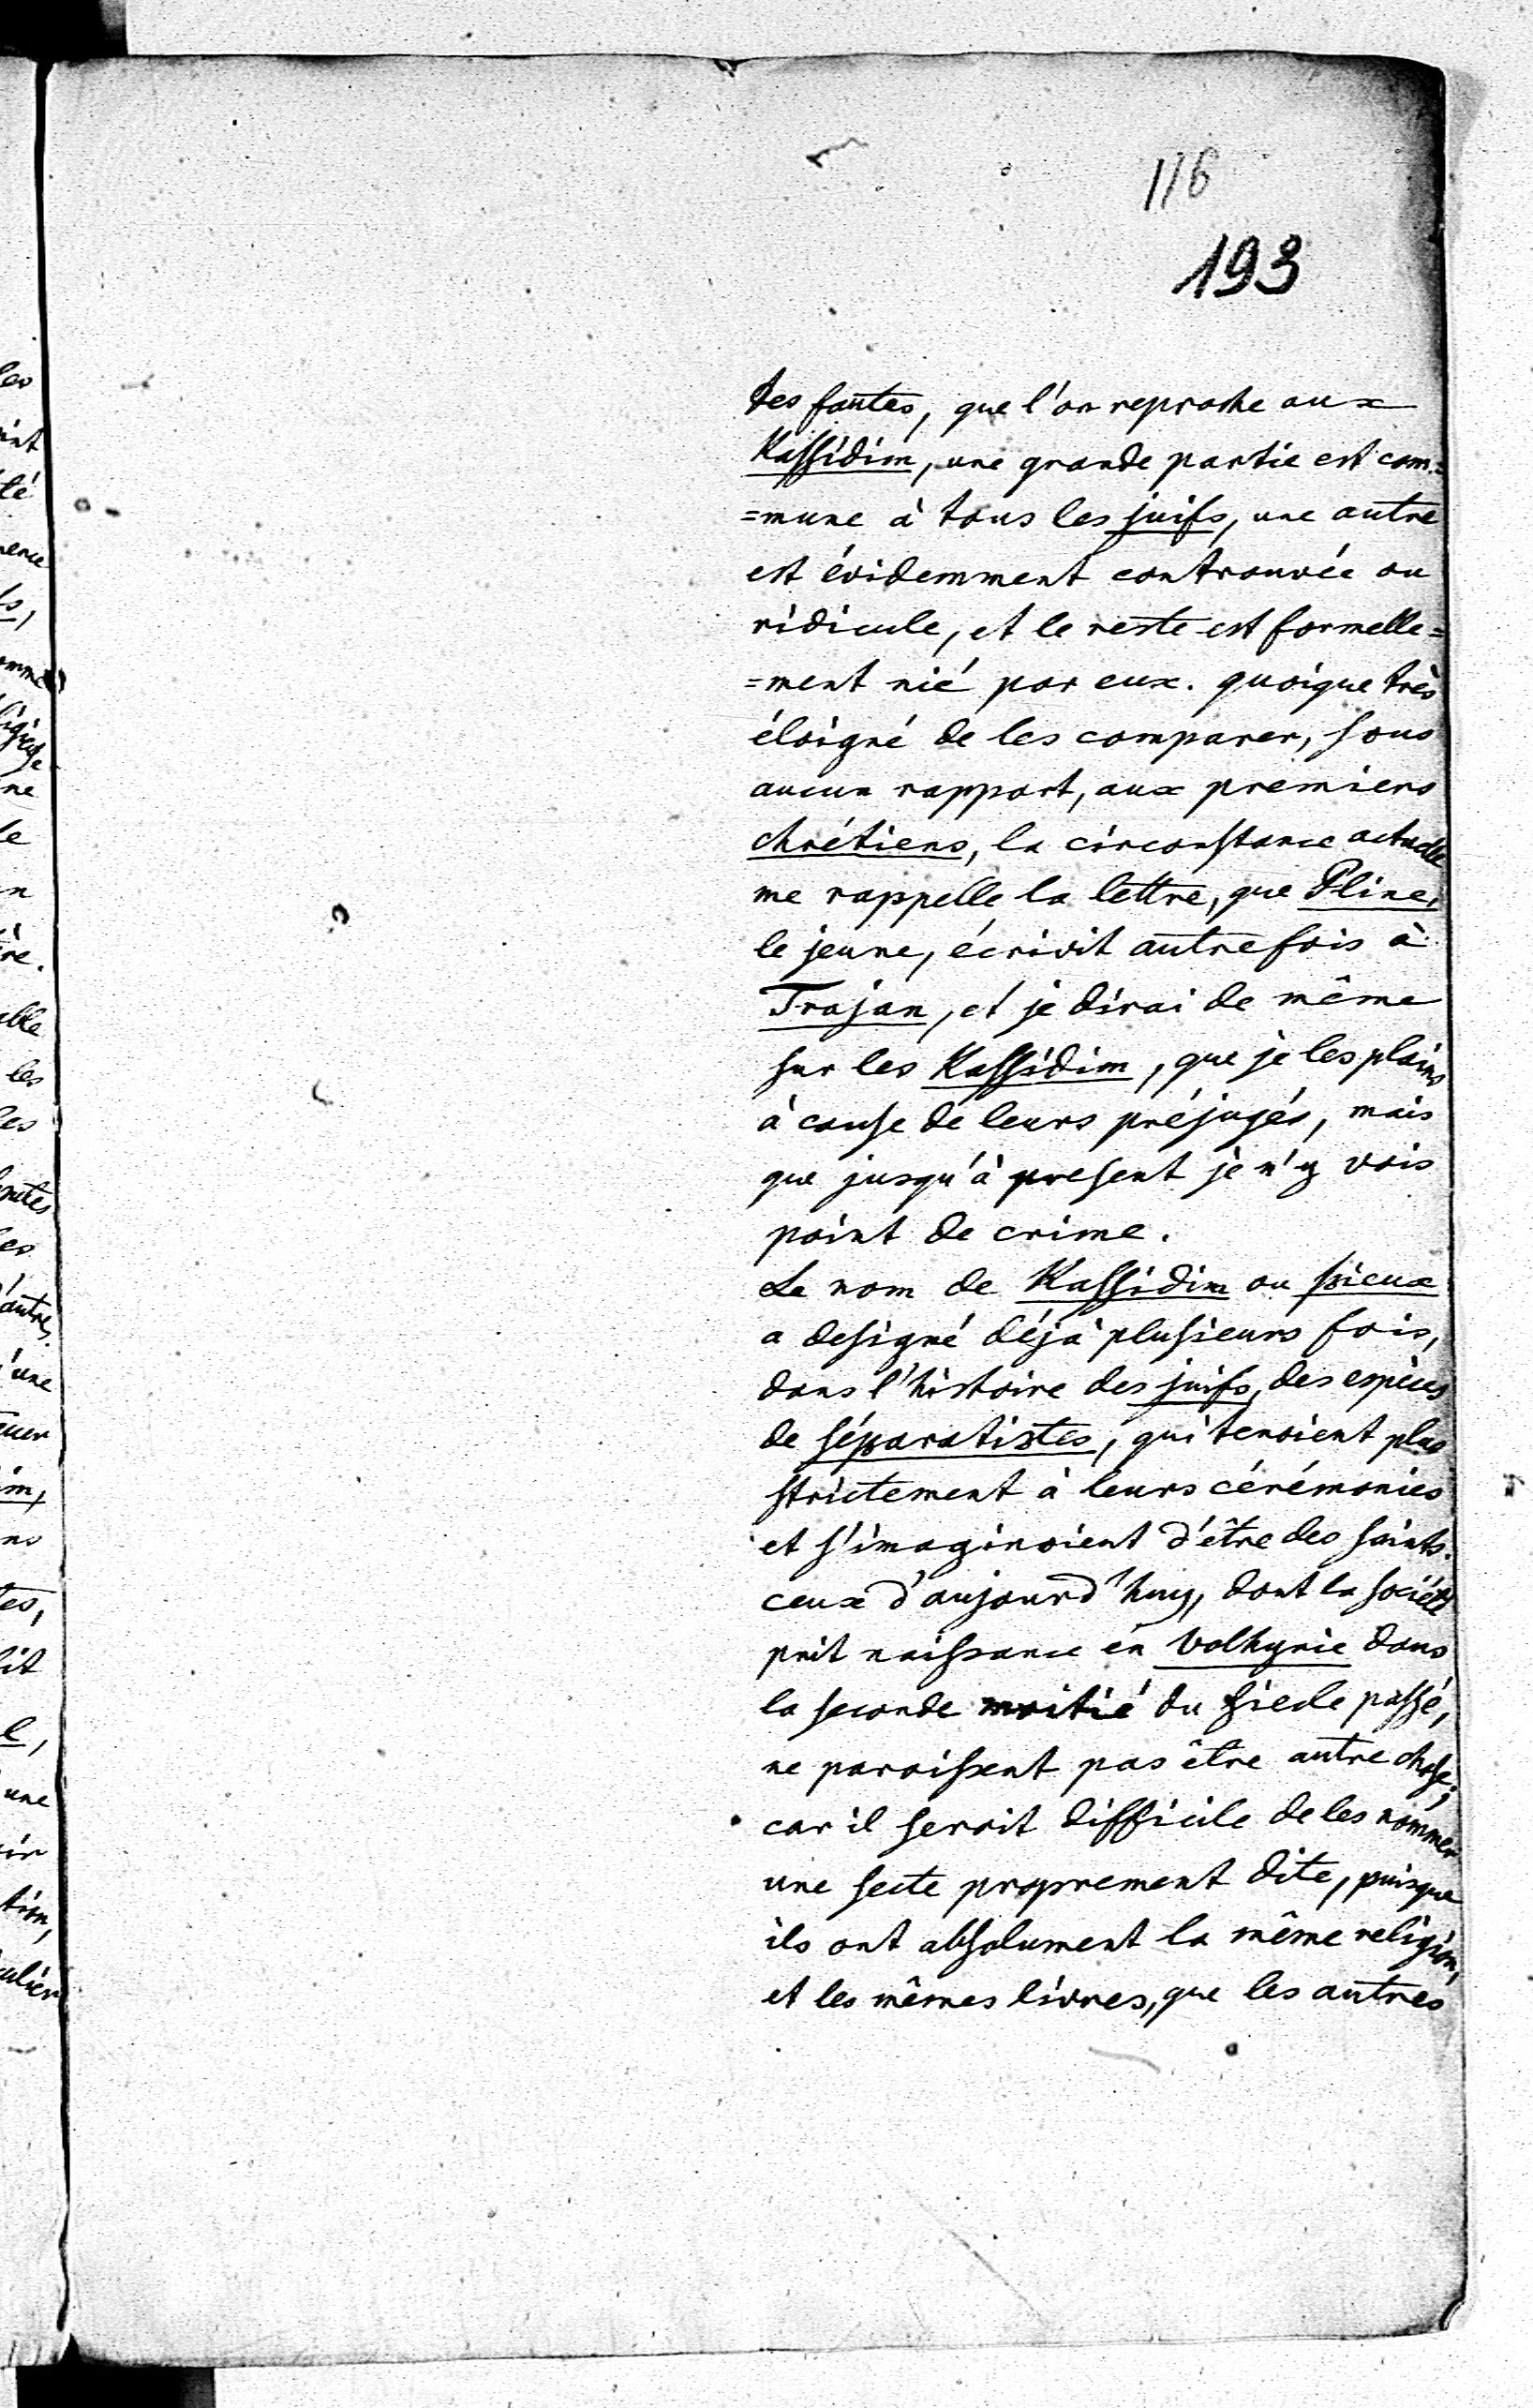 116
193
des fautes, que l'on reproche aux
Kassidim, une grande partie est com=
=mune à tous les juifs, une autre
est évidemment controuvée ou
ridicule, et le reste est formelle=
=ment nié par eux. quoique très
éloigné de les comparer, sous
aucun rapport, aux premiers
chrétiens, la circonstance actuelle
me rappelle la lettre, que Pline,
le jeune, écrivit autrefois à
Trajan, et je dirai de même
sur les Kassidim, que je les plains
à cause de leurs préjugés, mais
que jusqu'à present je n'y vois
point de crime.
Le nom de Kassidim ou pieux
a designé déjà plusieurs fois,
dans l'histoire des juifs, des espèces
de séparatistes, qui tenoient plus
strictement à leurs cérémonies
et s'imaginoient d'être des saints.
ceux d'aujourd'huy, dont la société
prit naissance en Volhynie dans
la seconde moitié du siecle passé,
ne paroissent pas être autre chose;
car il seroit difficile de les nommer
une secte proprement dite, puisque
ils ont absolument la même religion,
et les mêmes livres, que les autres